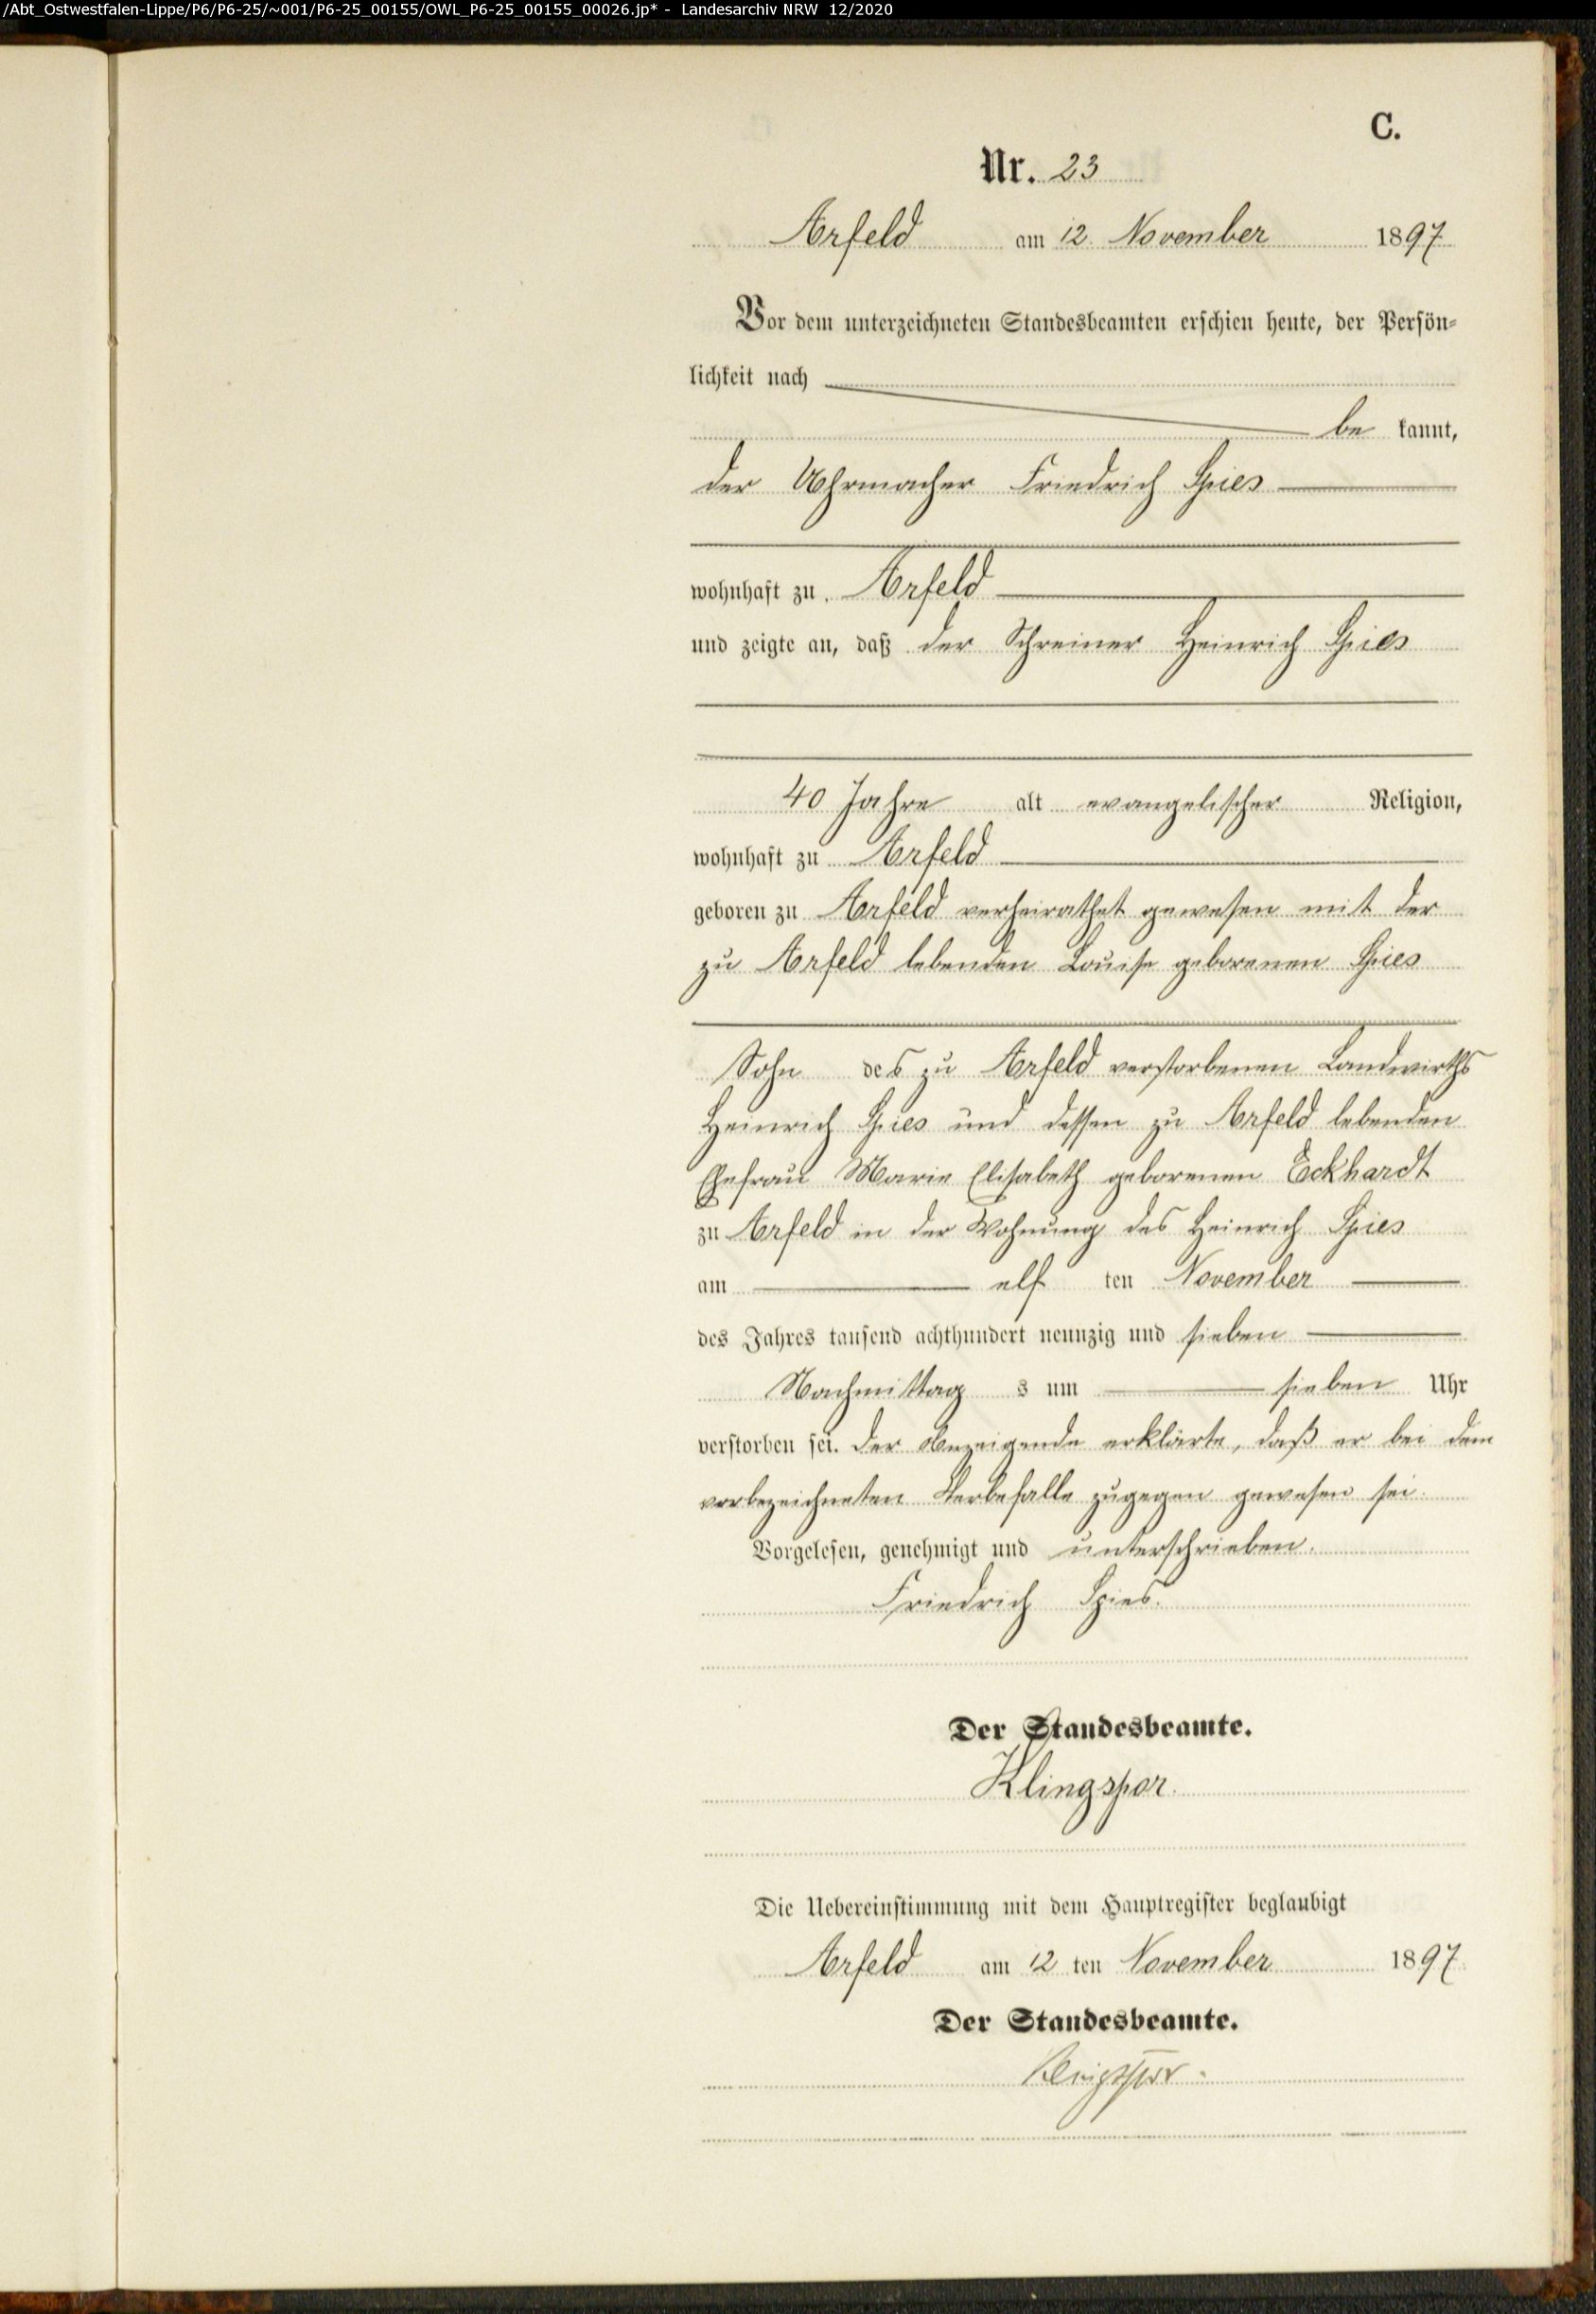 /Abt_Ostwestfalen-Lippe/P6/P6-25/~001/P6-25_00155/OWL_P6-25_00155_00026.jp* - Landesarchiv NRW 12/2020
C.
Nr. 23
Arfeld am 12. November 1897
Vor dem unterzeichneten Standesbeamten erschien heute, der Persön-
lichkeit nach
be kannt,
der Uhrmacher Friedrich Spies
wohnhaft zu Arfeld
und zeigte an, daß der Schreiner Heinrich Spies
40 Jahre alt evangelischer Religion,
wohnhaft zu Arfeld
geboren zu Arfeld verheirathet gewesen mit der
zu Arfeld lebenden Louise geborenen Spies
Sohn des zu Arfeld verstorbenen Landwirths
Heinrich Spies und dessen zu Arfeld lebenden
Ehefrau Marie Elisabeth geborenen Eckhardt
zu Arfeld in der Wohnung des Heinrich Spies
am elf ten November
des Jahres tausend achthundert neunzig und sieben
Nachmittag s um sieben Uhr
verstorben sei. Der Anzeigende erklärte, daß er bei dem
vorbezeichneten Sterbefalle zugegen gewesen sei.
Vorgelesen, genehmigt und unterschrieben.
Friedrich Spies.
Der Standesbeamte.
Klingspor.
Die Uebereinstimmung mit dem Hauptregister beglaubigt
Arfeld am 12 ten November 1897
Der Standesbeamte.
Klingspor.